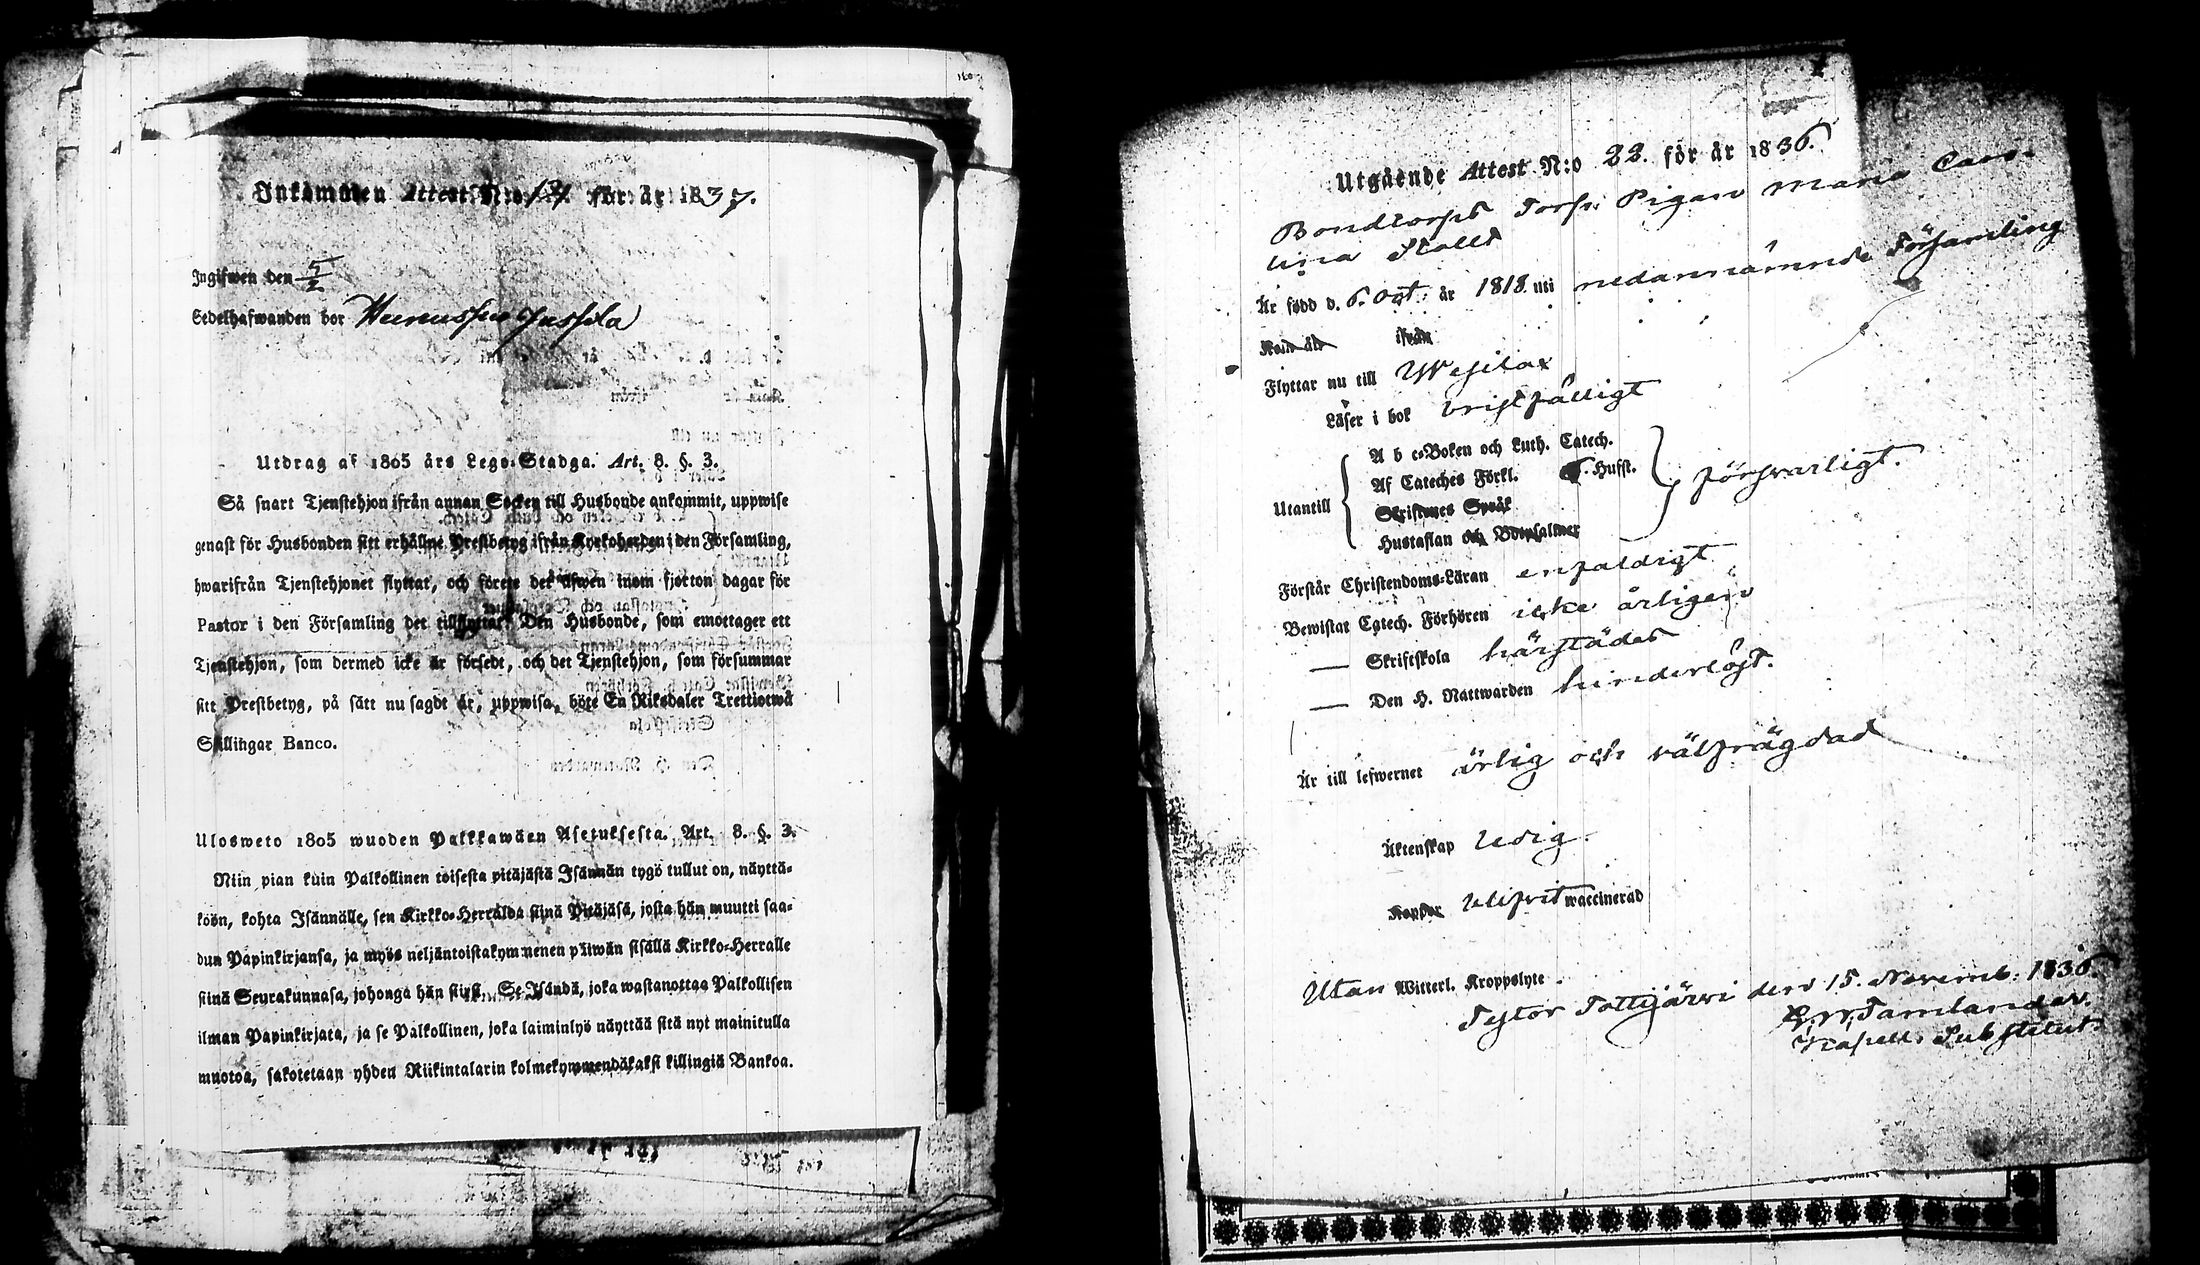 Inkommen Attest N:o 121 för år 1837.
Ingifwen den 5/2
Sedelhafwanden bor Jussila
Utdrag af 1805 års Lego-Stadga. Art. 8. §. 3.
Så snart Tjenstehjon ifrån annan Socken till Husbonde ankommit, uppwise
genast för Husbonden sitt erhållne Prestbetyg ifrån Kyrkoherden i den Församling,
hwarifrån Tjenstehjonet flyttat, och förete det äfwen inom fjorton dagar för
Pastor i den Församling det tillflyttat. Den Husbonde, som emottager ett
Tjenstehjon, som dermed icke är försedt, och det Tjenstehjon, som försummar
sitt Prestbetyg, på sätt nu sagdt är, uppwisa, böte En Riksdaler Trettiotwå
Skillingar Banco.
Ulosweto 1805 wuoden Palkkawäen Asetuksesta. Art. 8. §. 3.
Niin pian kuin Palkollinen toisesta pitäjästä Isännän tygö tullut on, näyttä-
köön, kohta Isännälle, sen Kirkko-Herralda siinä Pitäjäsä, josta hän muutti saa-
dun Papinkirjansa, ja myös neljäntoistakymmenen päiwän sisällä Kirkko-Herralle
siinä Seurakunnasa, johonga hän siirsi. Se Isändä, joka wastanottaa Palkollisen
ilman Papinkirjata, ja se Palkollinen, joka laiminlyö näyttää sitä nyt mainitulla
muotoa, sakotetaan yhden Riikintalarin kolmekymmendäkaksi killingiä Bankoa.
Utgående Attest N:o 22. för år 1836.
Bondtorps Torp: Pigan Maria Caro-
lina Stolt
Är född d. 6. Oct. år 1818. uti nedannämnde Församling
Kom åhr ifrån
Flyttar nu till Wesilax
Läser i bok bristfälligt
A b c-Boken och Luth. Catech.
Af Cateches Förkl. 6. Hufst.
Utantill försvarligt.
Skriftenes Språk
Hustaflan och Botpsalmer
Förstår Christendoms-Läran enfaldigt
Bewistat Catech. Förhören icke årligen
— Skriftskola härstädes
— Den H. Nattwarden hinderlöst.
Är till lefwernet ärlig och välfrägdad
Äktenskap ledig.
Koppor utifrit waccinerad
Utan Witterl. Kroppslyte.
Tottijärvi den 15. Novemb: 1836.
Tamlander.
Kapell: Substitut